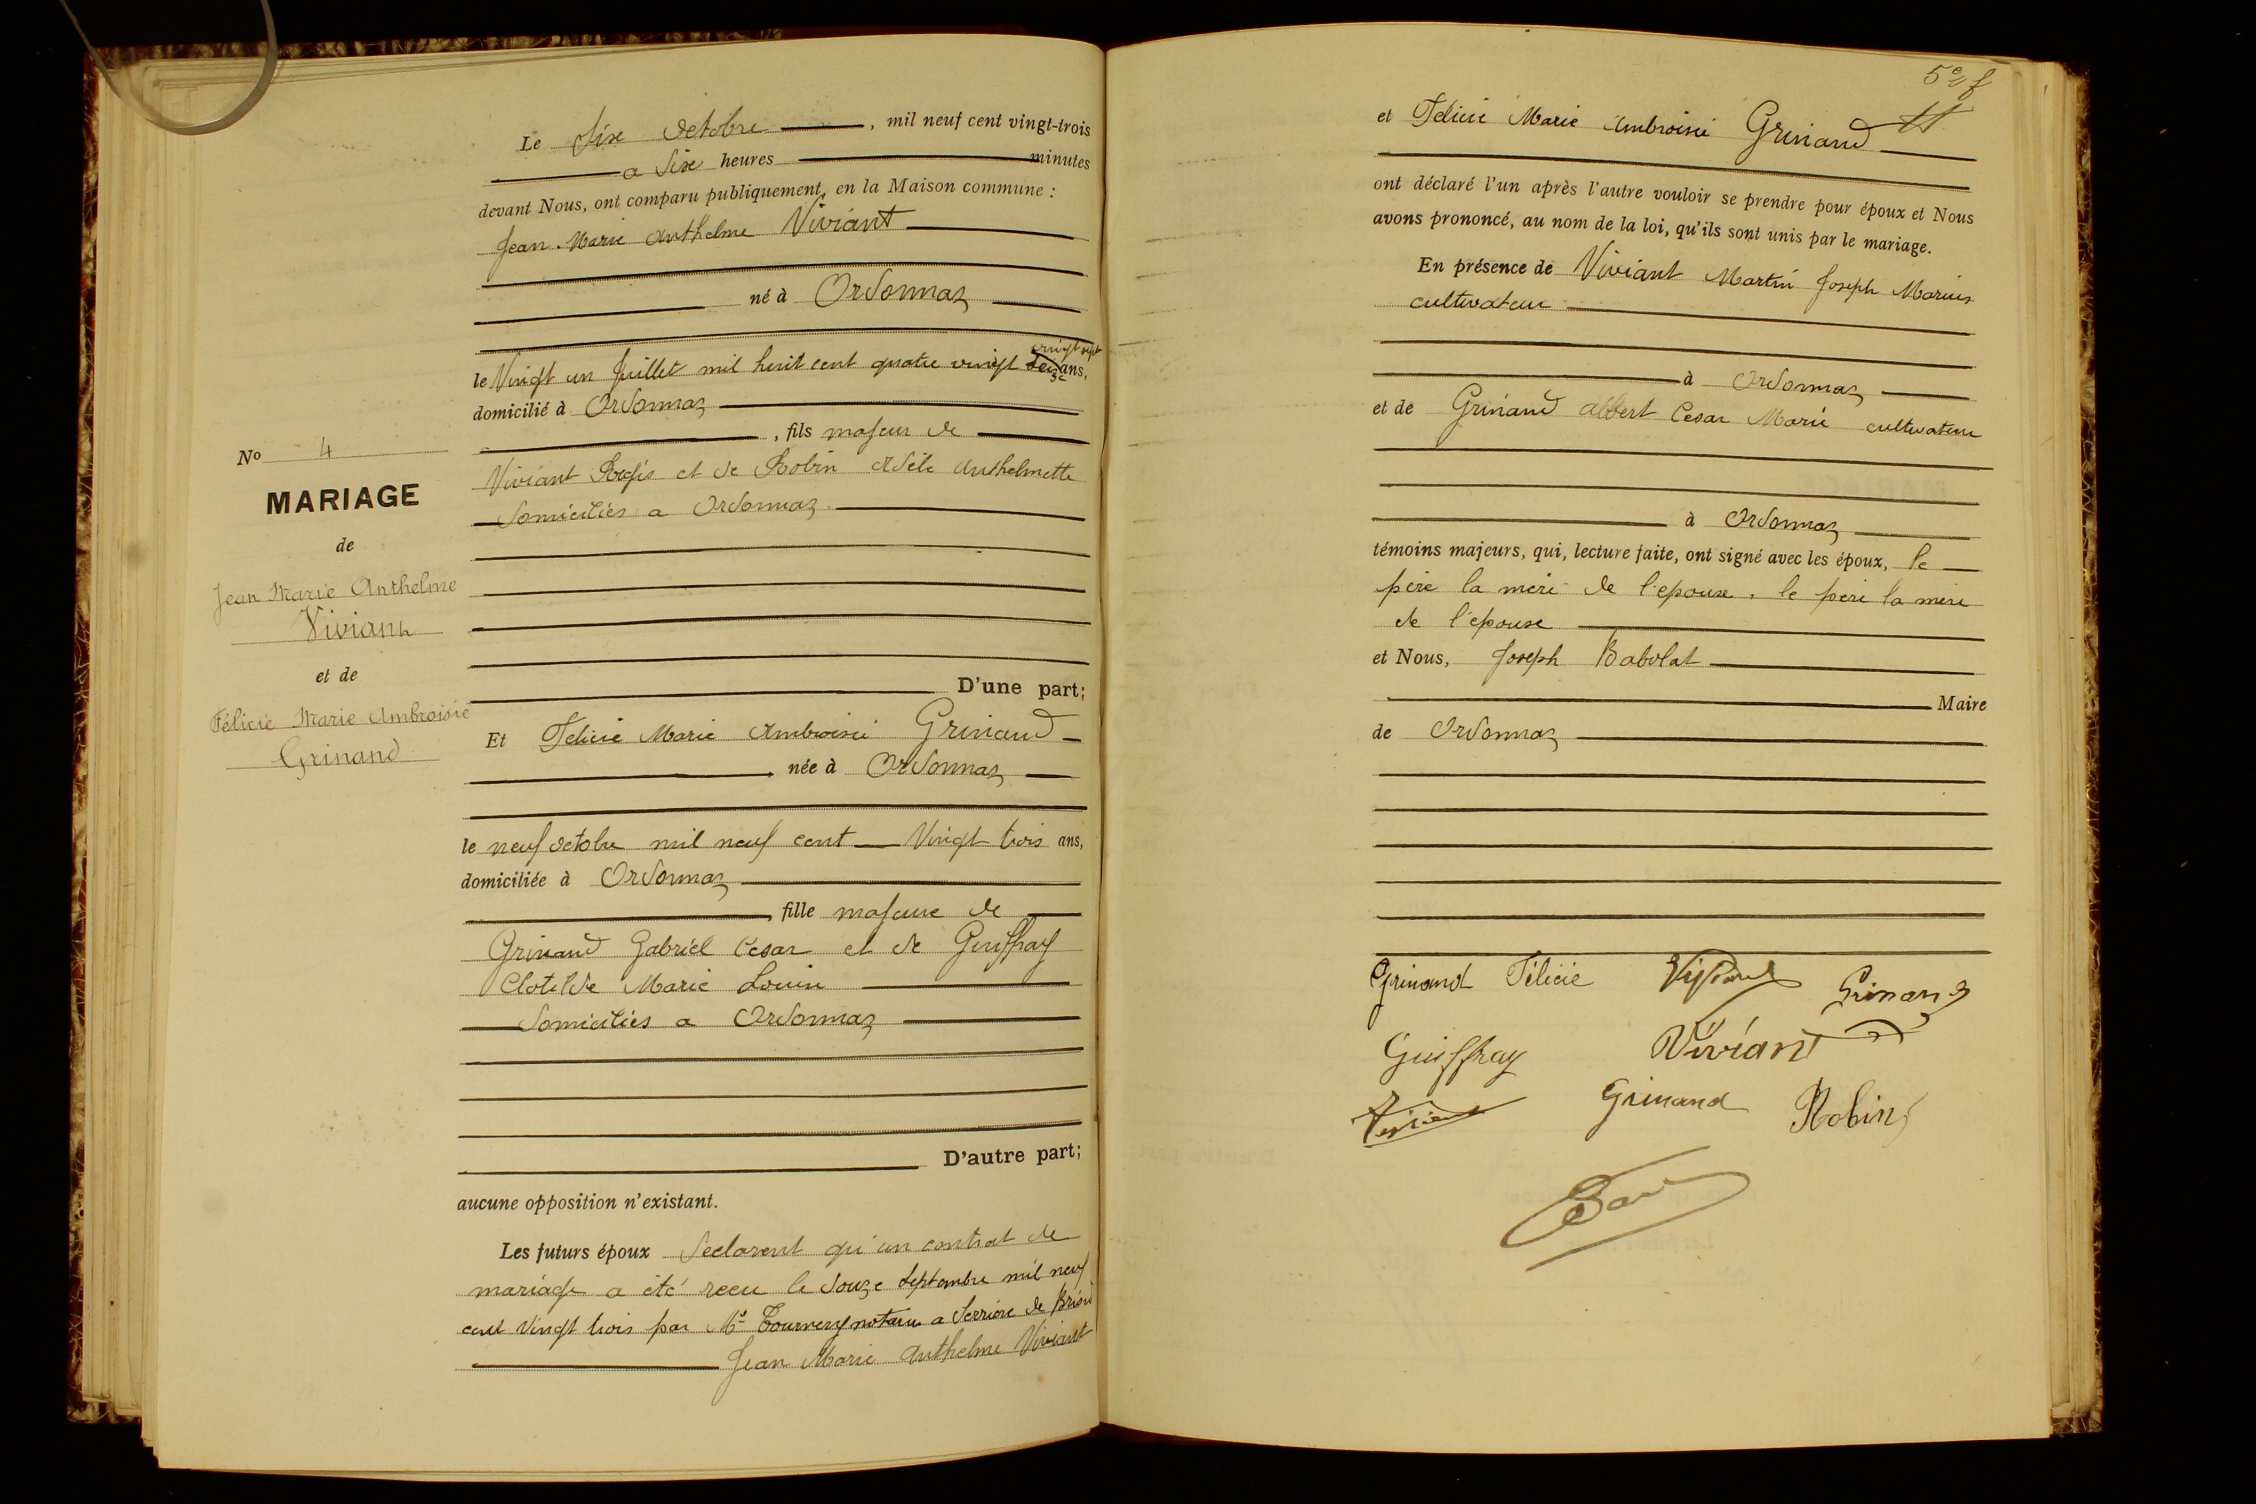 Le Six Octobre, mil neuf cent vingt-trois
a Six heures minutes
devant Nous, ont comparu publiquement, en la Maison commune :
Jean Marie Anthelme Viviant
né à Ordonnaz
vingt sept
le Vingt un Juillet mil huit cent quatre vingt seize ans,
domicilié à Ordonnaz
, fils majeur de
Viviant Régis et de Robin Adèle Anthelmette
domiciliés a Ordonnaz
No 4
MARIAGE
de
Jean Marie Anthelme
Viviant
et de
Félicie Marie Ambroisie
Grinand
D'une part;
Et Felicie Marie Ambroisie Grinand
née à Ordonnaz
le neuf Octobre mil neuf cent Vingt trois ans,
domiciliée à Ordonnaz
, fille majeure de
Grinand Gabriel Cesar et de Guiffray
Clotilde Marie Louise
domiciliés a Ordonnaz
D'autre part;
aucune opposition n'existant.
Les futurs époux declarent qu'un contrat de
mariage a été recu le douze Septembre mil neuf
cent vingt trois par Me Tournery notaire a Serrière de Briord
Jean Marie Anthelme Viviant
5e f
et Felicie Marie Ambroisie Grinand
ont déclaré l'un après l'autre vouloir se prendre pour époux et Nous
avons prononcé, au nom de la loi, qu'ils sont unis par le mariage.
En présence de Viviant Martin Joseph Marius
cultivateur
à Ordonnaz
et de Grinand Albert Cesar Marie cultivateur
à Ordonnaz
témoins majeurs, qui, lecture faite, ont signé avec les époux, le
père la mère de l'epouse, le père la mère
de l'épouse
et Nous, Joseph Babolat
Maire
de Ordonnaz
Grinand Félicie Viviant Grinand
Guiffray Viviant
Viviant Grinand Robin